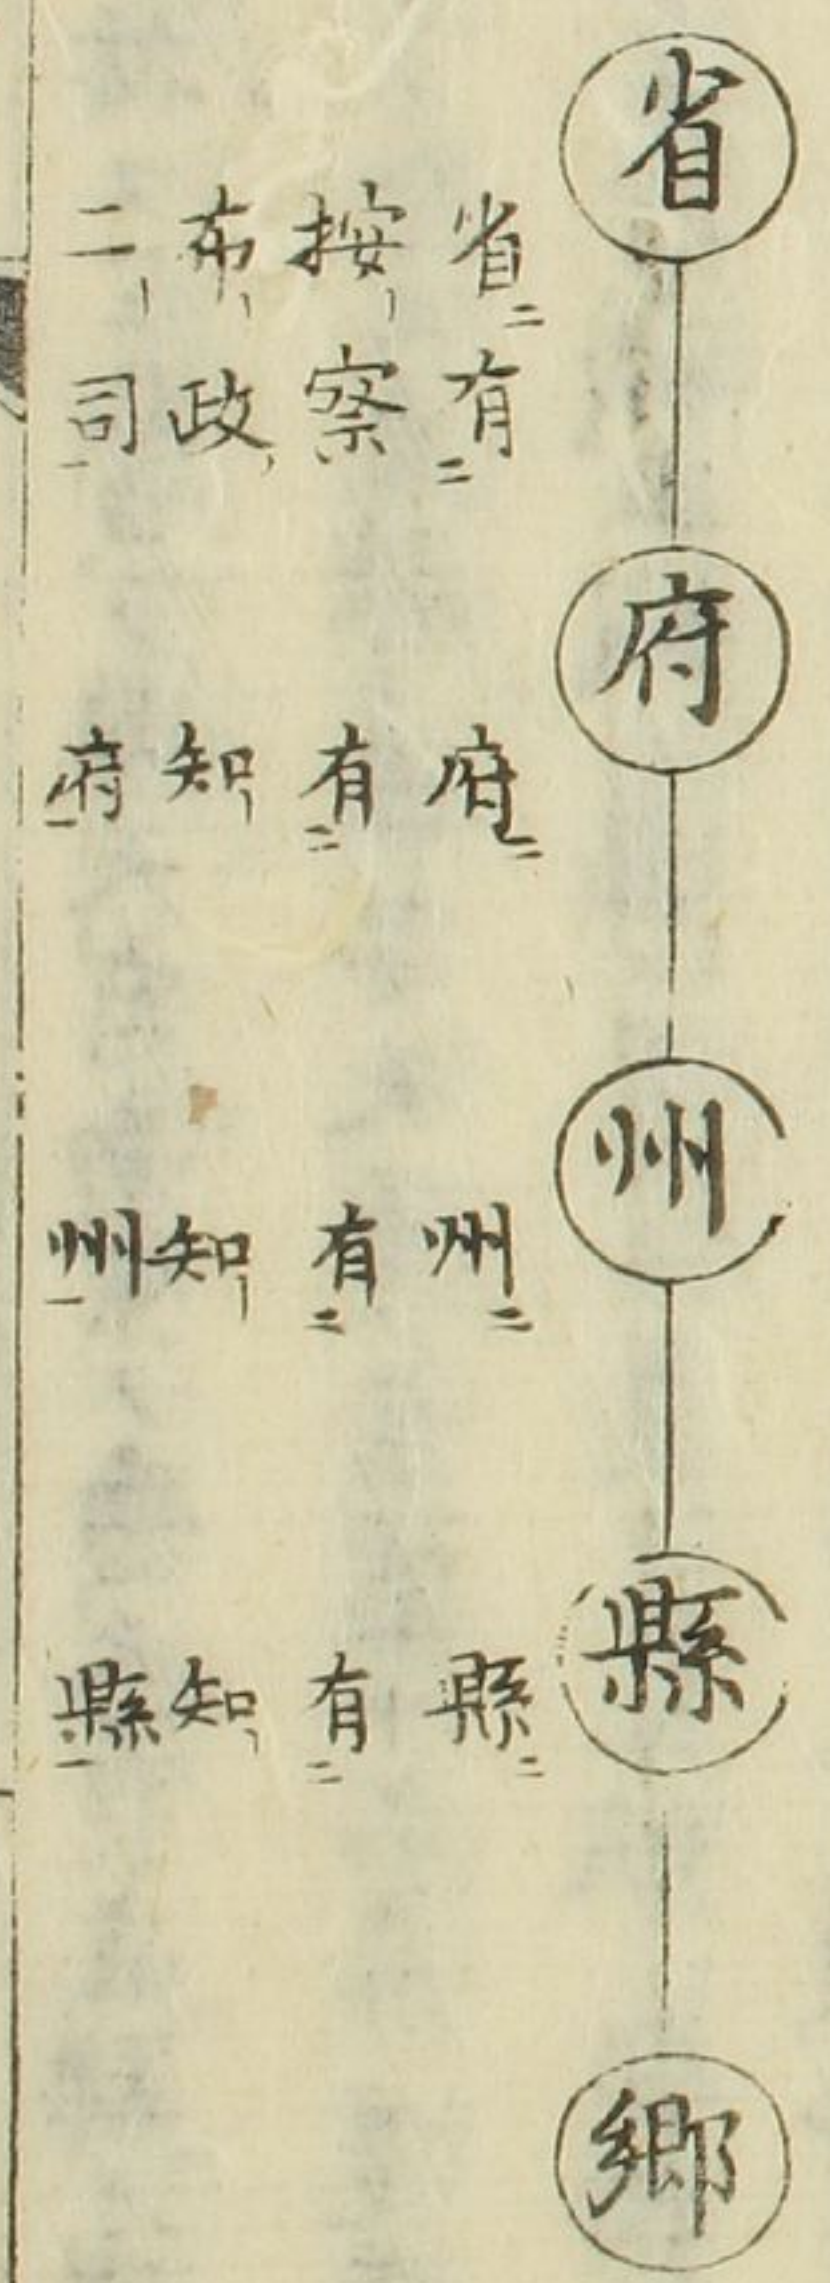 省
省有
按察
布政
二司
府
府有知府
州
州有知州
縣
縣有知縣
鄉